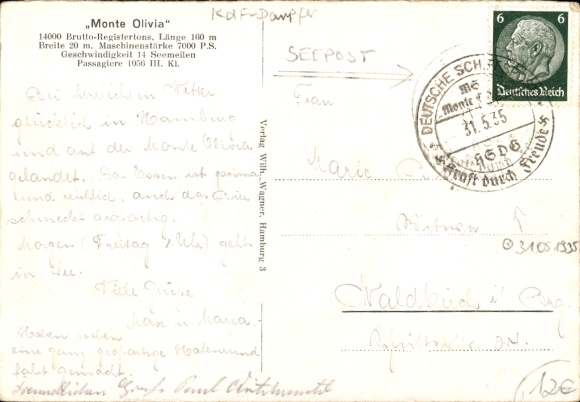 „Monte Olivia"
14000 Brutto-Registertons, Länge 160 m
Breite 20 m, Maschinenstärke 7000 P.S.
Geschwindigkeit 14 Seemeilen
Passagiere 1056 III. Kl.
KdF-Dampfer
SEEPOST
6 6
Deutsches Reich
DEUTSCHE SCH
MS
Monte
31.5.35
HSDG
Kraft durch Freude
Bei herrlichem Wetter
glücklich in Hamburg
und auf der Monte Olivia
gelandet. Das Essen ist prima
und reichlich, auch das Bier
schmeckt
Morgen (Freitag 5 Uhr) geht's
in See.
Viele Grüße
Max u. Maria
Haben soeben
eine ganz großartige Hafenrund
fahrt gemacht.
Freundlichen Gruß Paul
Verlag Wilh. Wagner, Hamburg 3
Frau
Marie
Witwe
31051935
Waldkirch i. Brg.
12€